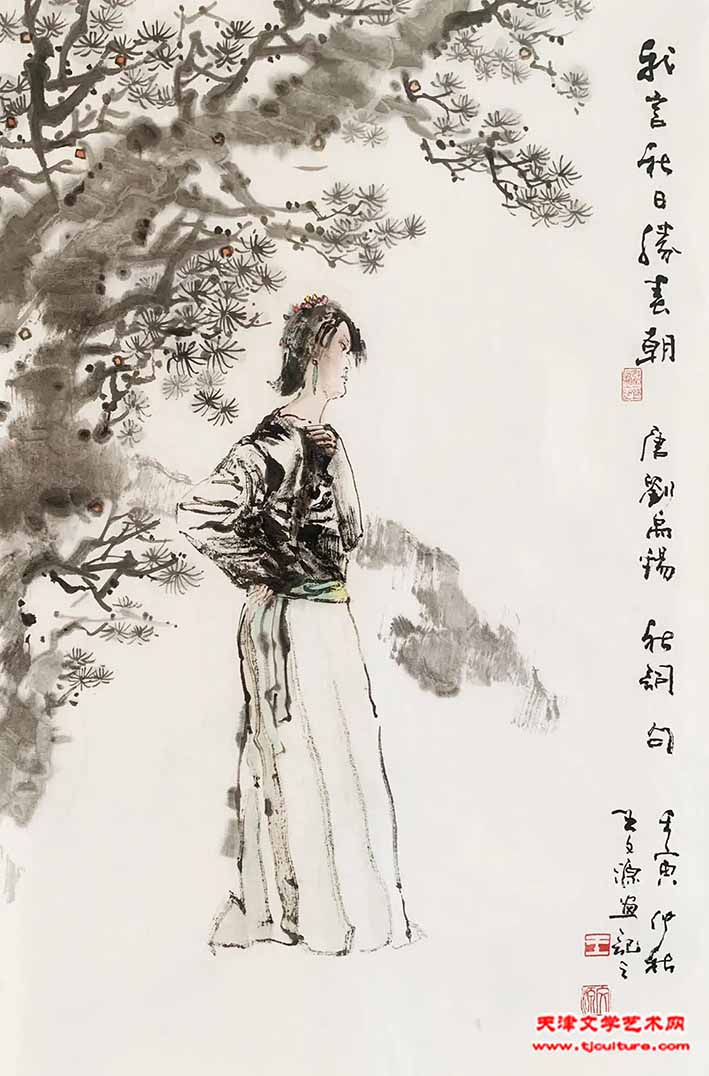 我言秋日勝春朝 唐劉禹錫 秋詞句 壬寅仲秋
王文源畫記之
王
天津文学艺术网
www.tjculture.com